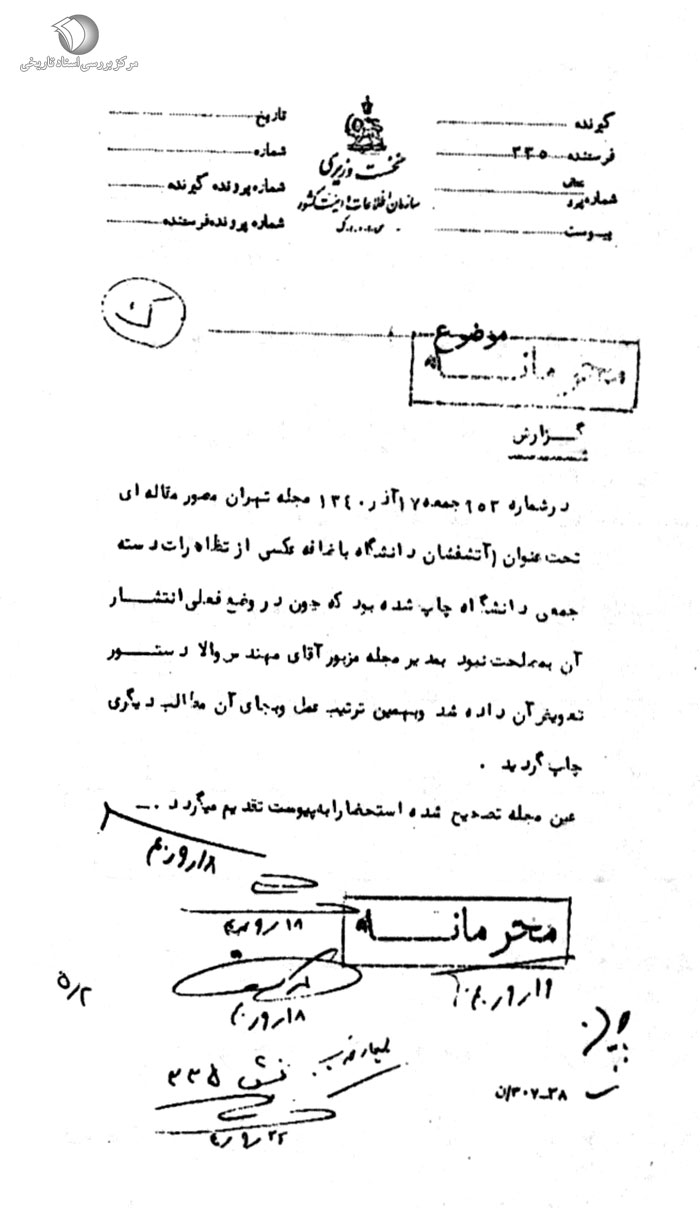 مرکز بررسی اسناد تاریخی
گیرنده
فرستنده ۳۳۵
شماره
پیوست
نخست وزیری
سازمان اطلاعات و امنیت کشور
س.ا.و.ا.ک
تاریخ
شماره
شماره پرونده گیرنده
شماره پرونده فرستنده
ک
موضوع
محرمانه
گزارش
درشماره ۹۵۲ جمعه ۱۷ آذر ۱۳۴۰ مجله تهران مصور مقاله ای
تحت عنوان (آتشفشان دانشگاه باضافه عکسی از تظاهرات دسته
جمعی دانشگاه چاپ شده بود که چون در وضع فعلی انتشار
آن بمصلحت نبود بمدیر مجله مزبور آقای مهندس والا دستور
تعویض آن داده شد وبهمین ترتیب عمل وبجای آن مطالب دیگری
چاپ گردید .
عین مجله تصحیح شده استحضارا به پیوست تقدیم میگردد .
۱۸/۹/۴۰
۱۸/۹/۴۰
محرمانه
۱۹/۹/۴۰
۱۸/۹/۴۰
۵/۲
بخش ۳۳۵
۲۲/۹/۴۰
۳۸-۳۰۷/ن